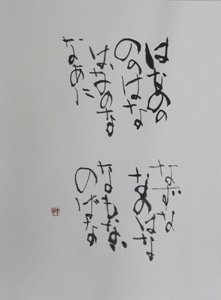 はなのの
ののはな
はなのな
なあに
なずな
なのはな
なもない
のばな